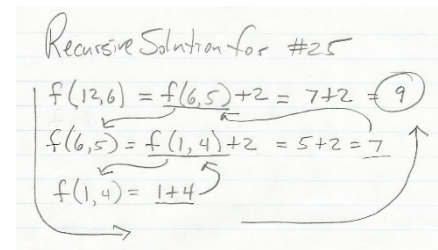 Recursive Solution for #25
f(12,6) = f(6,5)+2 = 7+2 = 9
f(6,5) = f(1,4)+2 = 5+2 = 7
f(1,4) = 1+4